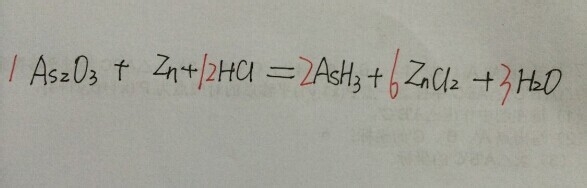 1 As₂O₃ + Zn + 12HCl = 2AsH₃ + 6ZnCl₂ + 3H₂O